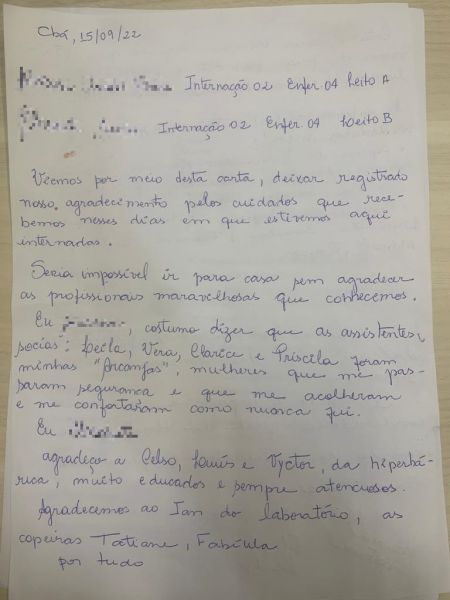 Cbá, 15/09/22
Internação 02 Enfer. 04 Leito A
Internação 02 Enfer. 04 Leito B
Viemos por meio desta carta, deixar registrado
nosso agradecimento pelos cuidados que rece-
bemos nesses dias em que estivemos aqui
internadas.
Seria impossível ir para casa sem agradecer
as profissionais maravilhosas que conhecemos.
Eu , costumo dizer que as assistentes
socias: Leila, Vera, Clarice e Priscila foram
minhas "Arcanjas", mulheres que me pas-
saram segurança e que me acolheram
e me confortaram como nunca fui.
Eu
agradeço a Celso, Luís e Vyctor, da hiperbá-
rica, muito educados e sempre atenciosos.
Agradecemos ao Ian do laboratório, as
copeiras Tatiane, Fabíula
por tudo